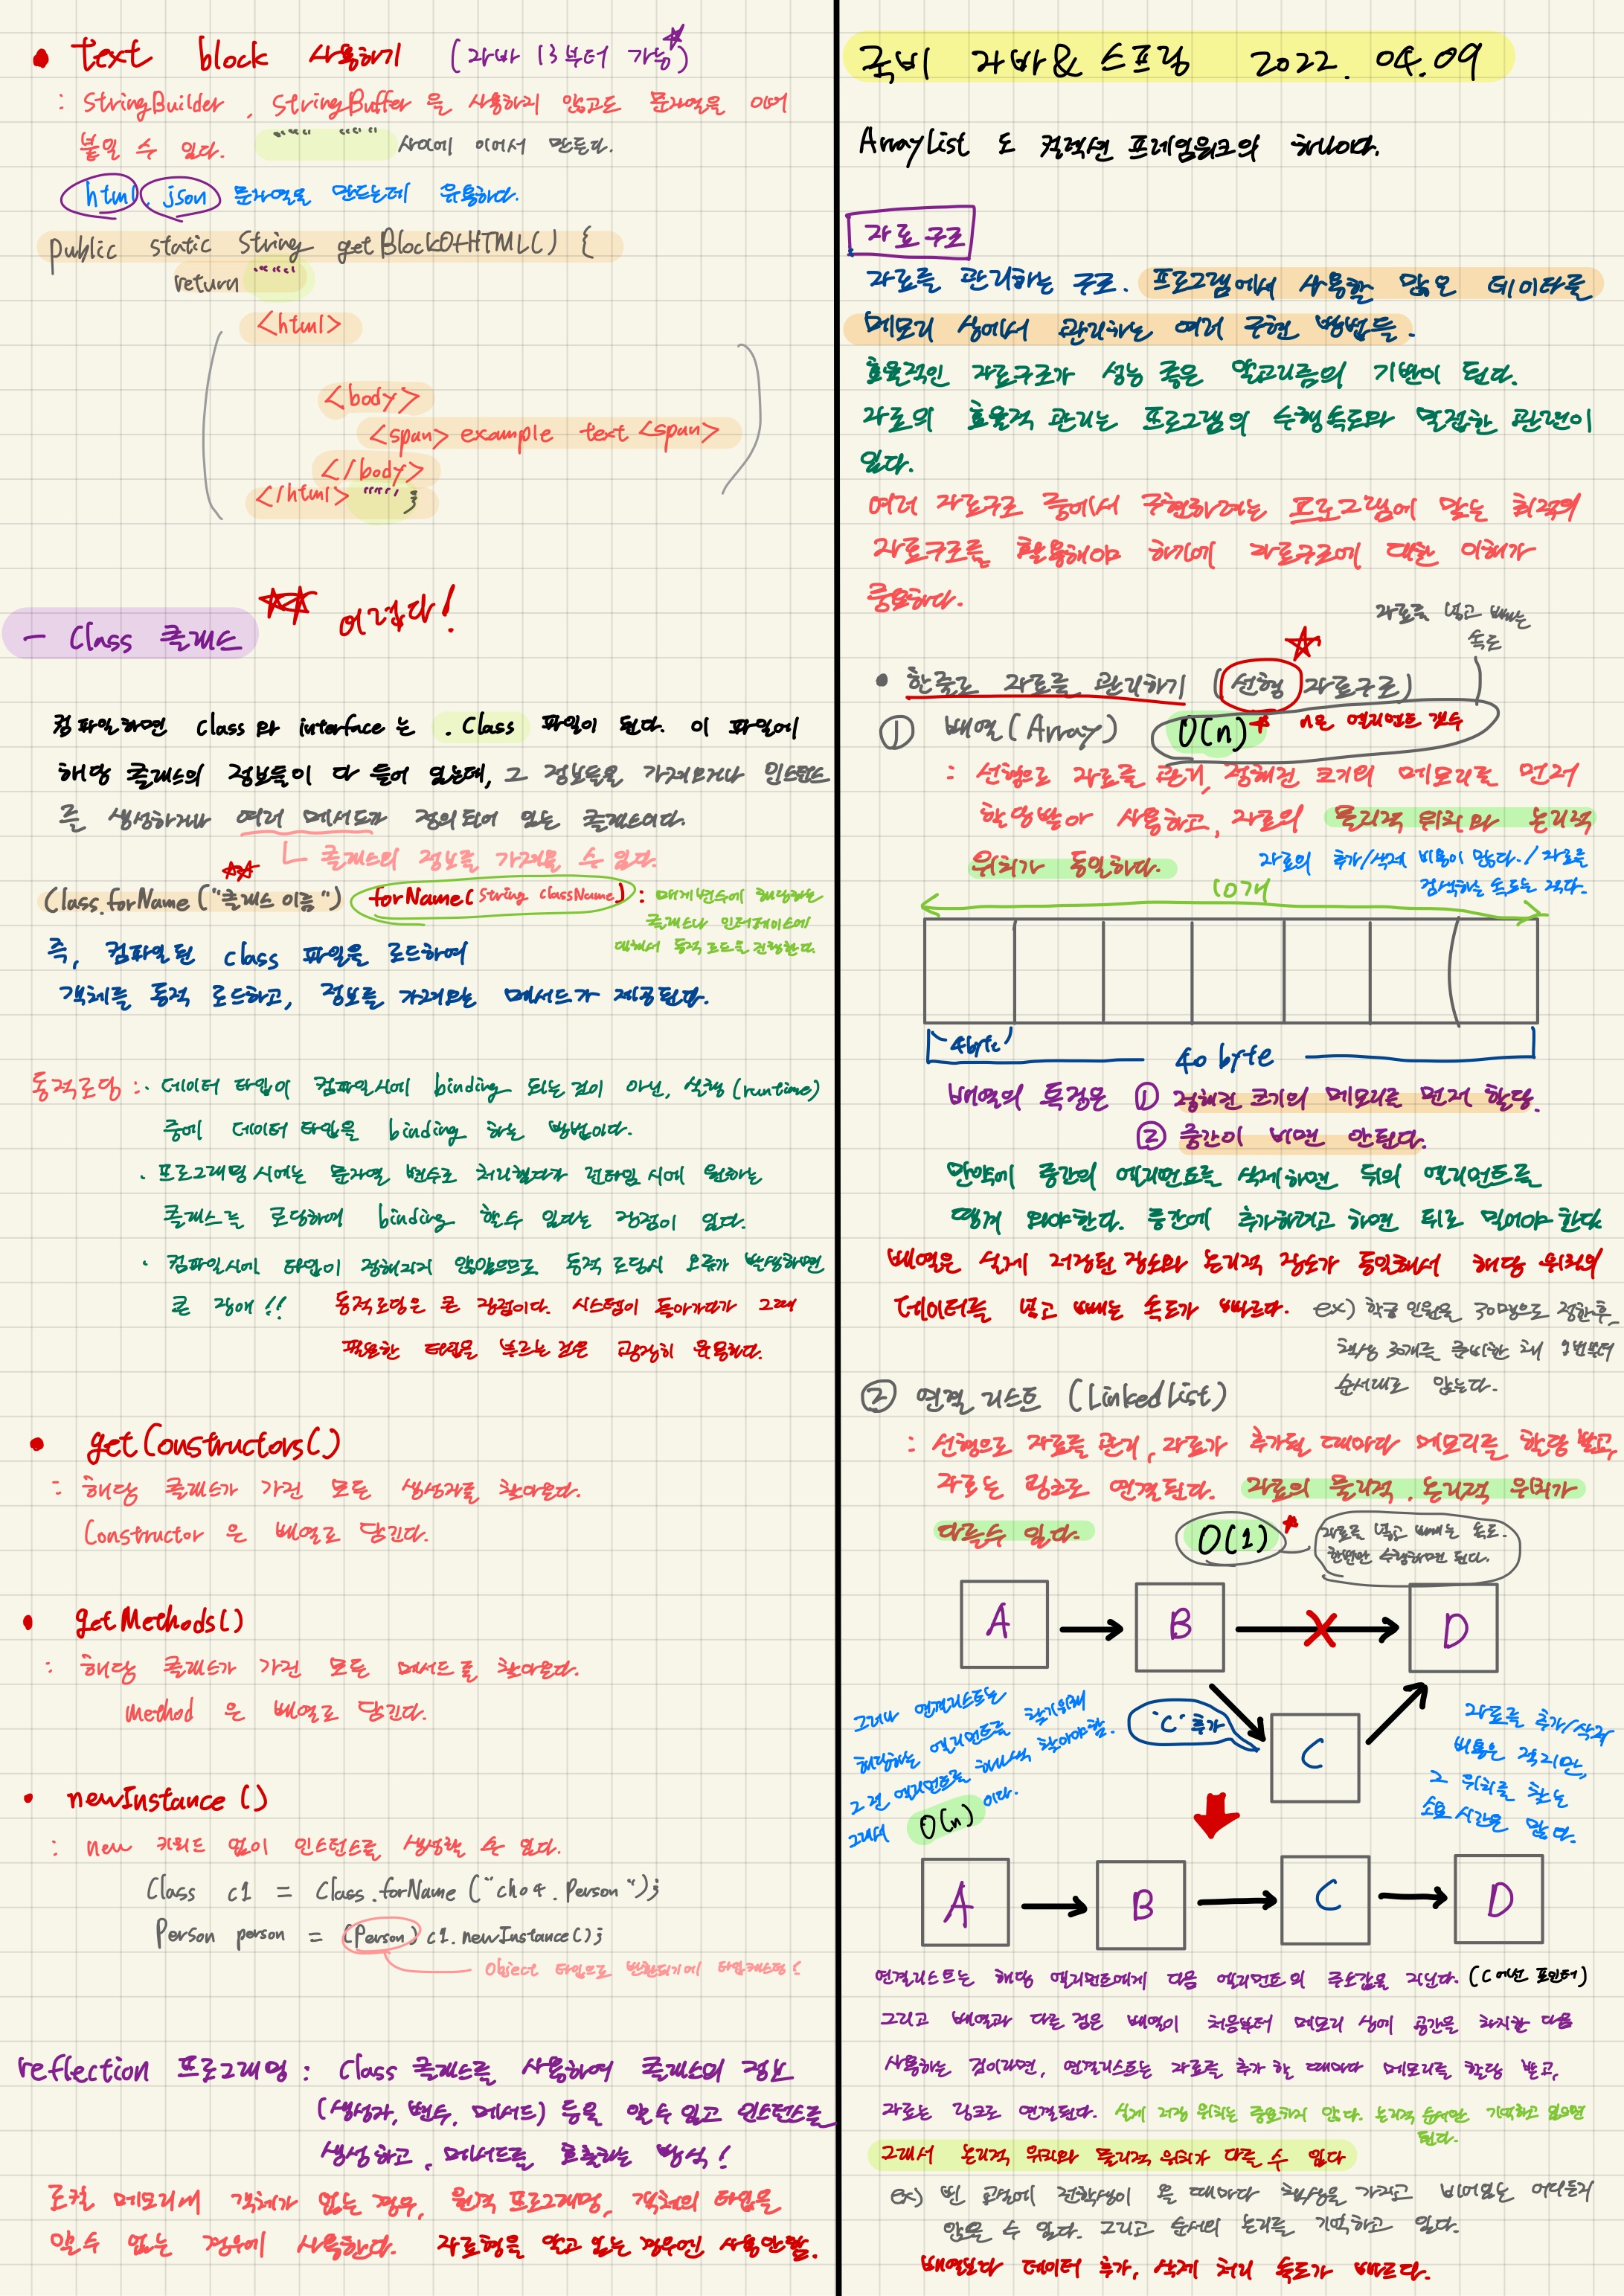 • text block 사용하기 (자바 13부터 가능)
: StringBuilder, StringBuffer 을 사용하지 않고도 문자열을 이어
붙일 수 있다. """ """ 사이에 이어서 만든다.
html, json 문자열을 만드는데 유용하다.
public static String getBlockOfHTML() {
return """
<html>
<body>
<span> example text <span>
</body>
</html> """;
- Class 클래스 어렵다!
컴파일하면 class와 interface는 .class 파일이 된다. 이 파일에
해당 클래스의 정보들이 다 들어 있는데, 그 정보들을 가져오거나 인스턴스
를 생성하거나 여러 메서드가 정의되어 있는 클래스이다.
클래스의 정보를 가져올 수 있다.
Class.forName("클래스 이름") forName(String className) : 매개변수에 해당하는
클래스나 인터페이스에
대해서 동적 로드를 진행한다.
즉, 컴파일된 class 파일을 로드하여
객체를 동적 로드하고, 정보를 가져오는 메서드가 제공된다.
동적로딩 : · 데이터 타입이 컴파일시에 binding 되는 것이 아닌, 실행(runtime)
중에 데이터 타입을 binding 하는 방법이다.
· 프로그래밍 시에는 문자열 변수로 처리했다가 런타임 시에 원하는
클래스를 로딩하여 binding 할 수 있다는 장점이 있다.
· 컴파일시에 타입이 정해지지 않았으므로 동적 로딩시 오류가 발생하면
큰 장애!! 동적로딩은 큰 장점이다. 시스템이 돌아가다가 그때
필요한 타입을 부르는 것은 굉장히 유용하다.
• getConstructors()
: 해당 클래스가 가진 모든 생성자를 찾아온다.
Constructor 은 배열로 담긴다.
• getMethods()
: 해당 클래스가 가진 모든 메서드를 찾아온다.
method 은 배열로 담긴다.
• newInstance()
: new 키워드 없이 인스턴스를 생성할 수 있다.
Class c1 = Class.forName("ch04.Person");
Person person = (Person)c1.newInstance();
Object 타입으로 반환되기에 타입캐스팅!
reflection 프로그래밍 : Class 클래스를 사용하여 클래스의 정보
(생성자, 변수, 메서드) 등을 알 수 있고 인스턴스를
생성하고, 메서드를 호출하는 방식!
로컬 메모리에 객체가 없는 경우, 원격 프로그래밍, 객체의 타입을
알 수 없는 경우에 사용한다. 자료형을 알고 있는 경우엔 사용안함.
국비 자바&스프링 2022. 04.09
ArrayList 도 컬렉션 프레임워크의 하나이다.
자료구조
자료를 관리하는 구조. 프로그램에서 사용할 많은 데이터를
메모리 상에서 관리하는 여러 구현 방법들.
효율적인 자료구조가 성능 좋은 알고리즘의 기반이 된다.
자료의 효율적 관리는 프로그램의 수행속도와 밀접한 관련이
있다.
여러 자료구조 중에서 구현하려는 프로그램에 맞는 최적의
자료구조를 활용해야 하기에 자료구조에 대한 이해가
중요하다.
자료를 넣고 빼는
속도
• 한줄로 자료를 관리하기 (선형 자료구조)
① 배열(Array) O(n) n은 엘리먼트 갯수
: 선형으로 자료를 관리, 정해진 크기의 메모리를 먼저
할당받아 사용하고, 자료의 물리적 위치와 논리적
위치가 동일하다. 자료의 추가/삭제 비용이 많다./자료를
검색하는 속도는 적다.
10개
4byte 40 byte
배열의 특징은 ① 정해진 크기의 메모리를 먼저 할당.
② 중간이 비면 안된다.
만약에 중간의 엘리먼트를 삭제하면 뒤의 엘리먼트를
땡겨 와야한다. 중간에 추가하려고 하면 뒤로 밀어야 한다
배열은 실제 저장된 장소와 논리적 장소가 동일해서 해당 위치의
데이터를 넣고 빼는 속도가 빠르다. ex) 학급 인원을 30명으로 정한후,
책상 30개를 준비한 채 1번부터
순서대로 앉는다.
② 연결 리스트 (LinkedList)
: 선형으로 자료를 관리, 자료가 추가될 때마다 메모리를 할당 받고,
자료는 링크로 연결된다. 자료의 물리적, 논리적 위치가
다를수 있다. O(1) 자료를 넣고 빼는 속도.
한번만 수행하면 된다.
A B D
그러나 연결리스트는
해당하는 엘리먼트를 찾기위해
그 전 엘리먼트를 하나씩 찾아야함.
그래서 O(n) 이다.
"C" 추가
C
자료를 추가/삭제
비용은 적지만,
그 위치를 찾는
소요 시간은 많다.
A B C D
연결리스트는 해당 엘리먼트에게 다음 엘리먼트의 주소값을 지닌다. (C에선 포인터)
그리고 배열과 다른 점은 배열이 처음부터 메모리 상에 공간을 차지한 다음
사용하는 것이라면, 연결리스트는 자료를 추가 할 때마다 메모리를 할당 받고,
자료는 링크로 연결된다. 실제 저장 위치는 중요하지 않다. 논리적 순서만 기억하고 있으면
된다.
그래서 논리적 위치와 물리적 위치가 다를 수 있다
ex) 빈 교실에 전학생이 올 때마다 책상을 가지고 비어있는 어디든지
앉을 수 있다. 그리고 순서의 논리를 기억하고 있다.
배열보다 데이터 추가, 삭제 처리 속도가 빠르다.